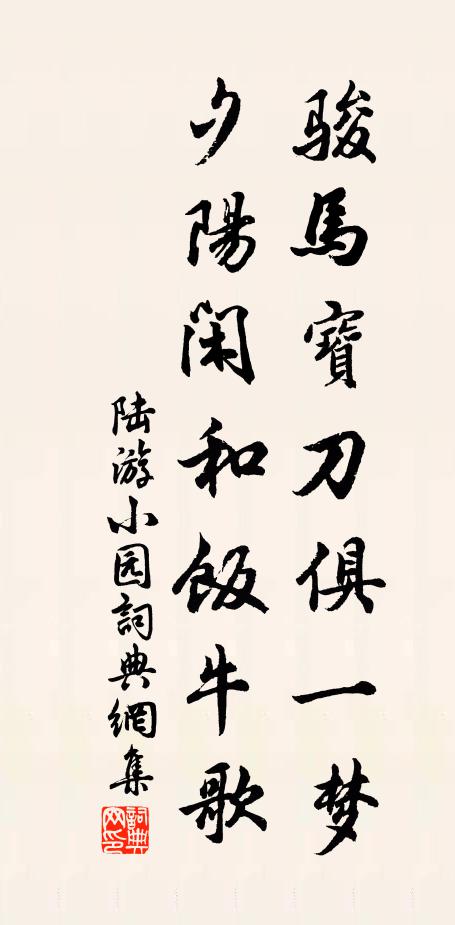 骏馬寶刀俱一梦
夕陽閑和飯牛歌
陆游小园詞典網集
詞典網印